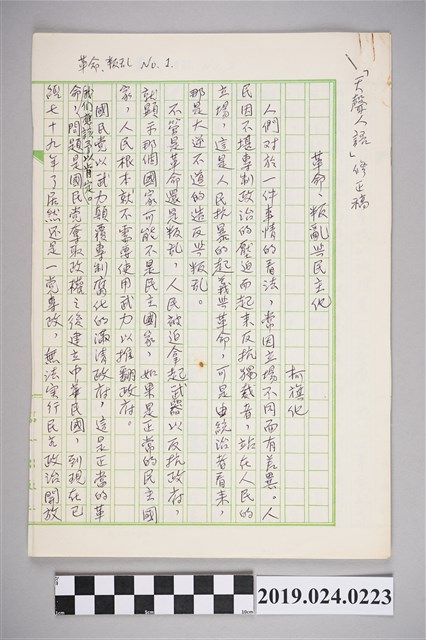 「天聲人語」修正稿
革命、叛乱 No. 1.
革命、叛亂與民主化
柯旗化
人們対於一件事情的看法，常因立場不同而有差異。人
民因不堪專制政治的壓迫而起来反抗獨裁者，站在人民的
立場，這是人民抗暴的起義與革命，可是由統治者看来，
那是大逆不道的造反與叛乱。
不管是革命還是叛乱，人民被迫拿起武器以反抗政府，
就顕示那個國家可能不是民主國家，如果是正常的民主國
家，人民根本就不需要使用武力以推翻政府。
國民党以武力顛覆專制腐化的滿清政府，這是正當的革
我們應該予以肯定。
命，問題是國民党奪取政權之後建立中華民國，到現在已
經七十九年了居然还是一党專政，無法実行民主政治開放
1cm
5cm
10cm
2019.024.0223